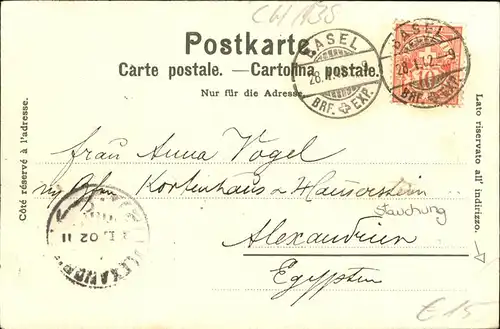 CH 135
Postkarte.
Carte postale. — Cartolina postale.
Nur für die Adresse.
BASEL
BRF. EXP.
BASEL
28.I.02
10
BRF. EXP.
Côté réservé à l'adresse.
Lato riservato all' indirizzo.
Frau Anna Vogel
Kortenhaus & Hauserstein
Stauchung
Alexandrien
Egypten
02 11
€ 15